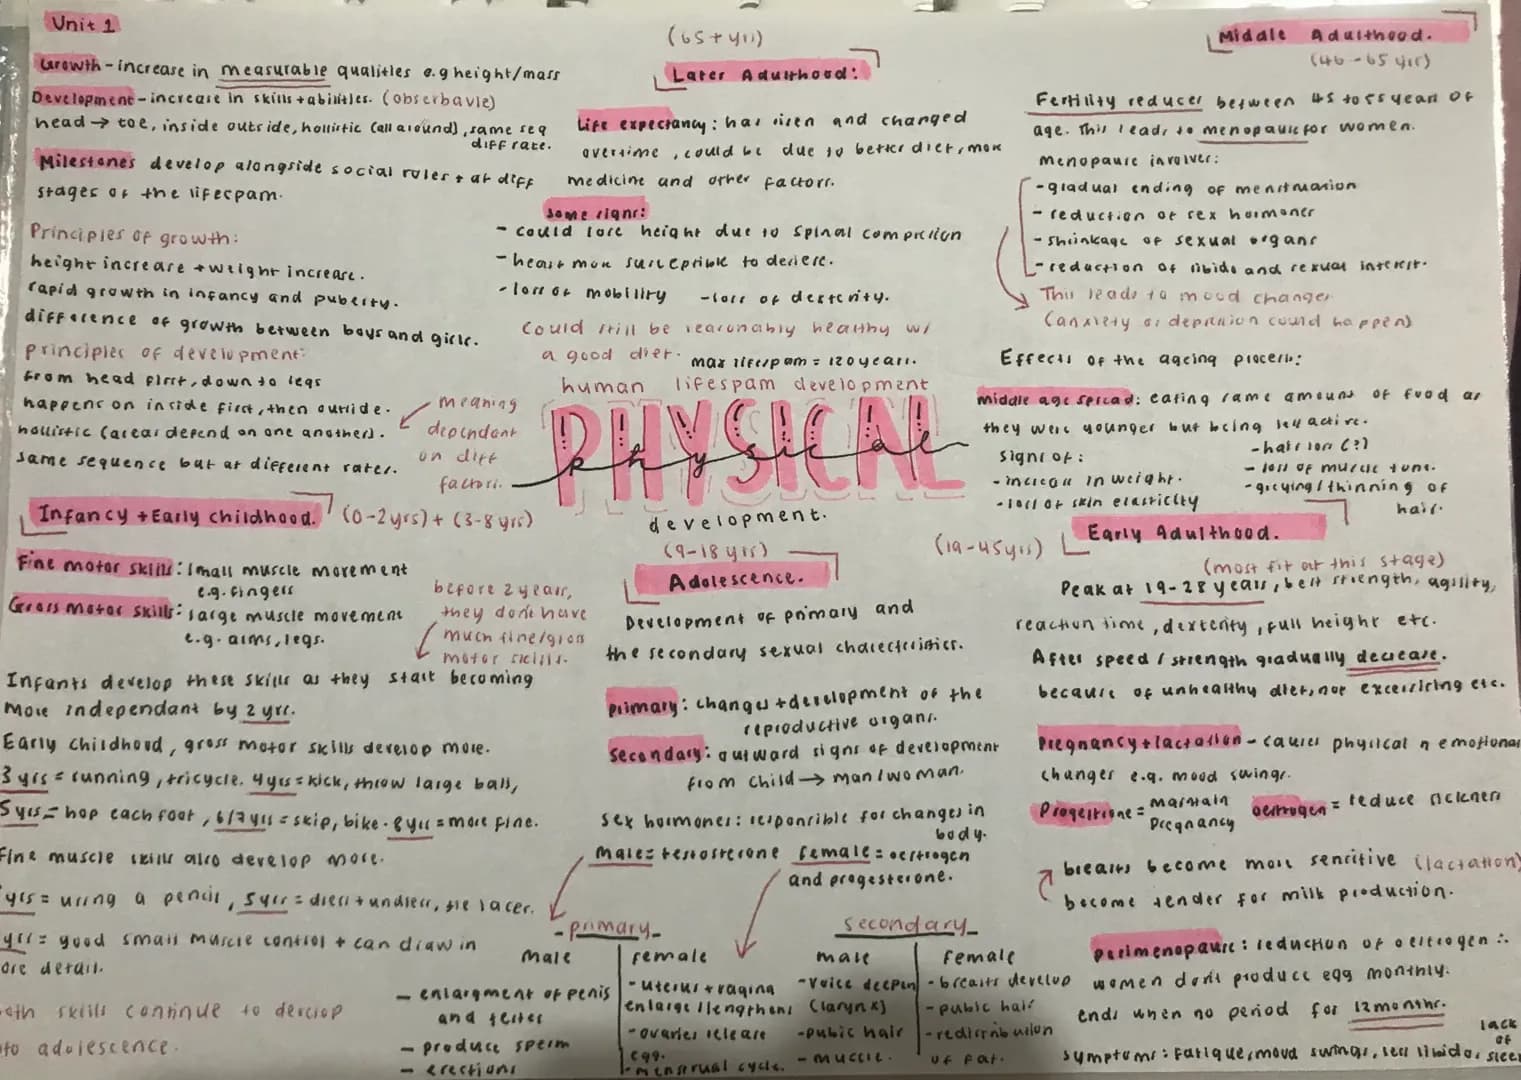 Unit 1
Growth - increase in measurable qualities e.g height/mass
Development - increase in skills + abilities. (obserbavle)
head → toe, inside outside, hollistic (all around), same seq
diff rate.
Milestones develop alongside social rules + at diff
stages of the lifespam.
Principles of growth:
height increase + weight increase.
rapid growth in infancy and puberty.
difference of growth between boys and girls.
principles of development:
from head first, down to legs
happens on inside first, then outside.
hollistic (areas depend on one another).
same sequence but at different rates.
meaning
dependant
on diff
factors.
Infancy + Early childhood. (0-2yrs) + (3-8yrs)
Fine motor skills: small muscle movement
e.g. fingers
Gross motor skills: large muscle movement
e.g. arms, legs.
before 2 years,
they don't have
much fine/gross
motor skills.
Infants develop these skills as they start becoming
more independant by 2 yrs.
Early childhood, gross motor skills develop more.
3 yrs = running, tricycle. 4yrs = kick, throw large ball,
5yrs = hop each foot, 6/7yrs = skip, bike. 8yrs = more fine.
Fine muscle skills also develop more.
yrs = using a pencil, 5yrs = dress + undress, tie laces.
yrs = good small muscle control + can draw in
ore detail.
oth skills continue to develop
to adolescence.
(65+ yrs)
Later Adulthood:
Life expectancy: has risen and changed
overtime, could be due to better diet, more
medicine and other factors.
Some signs:
- could lose height due to spinal compression
- heart more susceptible to
- loss of mobility - loss of dexterity.
Could still be reasonably healthy w/
a good diet. max lifespam = 120 years.
human lifespam development
PHYSICAL
physical
development.
(9-18 yrs)
Adolescence.
Development of primary and
the secondary sexual
primary: changes + development of the
reproductive organs.
Secondary: outward signs of development
from child → man/woman.
sex hormones: responsible for changes in
body.
male = testosterone female = oestrogen
and progesterone.
- primary -
male
- enlargment of penis
and testes
- produce sperm
- erections
female
- uterus + vagina
enlarge/lengthens
- ovaries release
egg.
- menstrual cycle.
secondary -
male
- voice deepen
(larynx)
- pubic hair
- muscle.
female
- breasts develop
- pubic hair
- redistribution
of fat.
Middle Adulthood.
(46-65 yrs)
Fertility reduces between 45 to 55 years of
age. This leads to menopause for women.
menopause involves:
- gradual ending of menstruation
- reduction of sex hormones
- shrinkage of sexual organs
- reduction of libido and sexual interest.
This leads to mood changes
(anxiety or depression could happen)
Effects of the ageing process:
Middle age spread: eating same amount of food as
they were younger but being less active.
signs of:
- increase in weight.
- loss of skin elasticity
- hair loss (?)
- loss of muscle tone.
- greying/thinning of
hair.
(19-45yrs) Early Adulthood.
(most fit at this stage)
Peak at 19-28 years, best strength, agility,
reaction time, dexterity, full height etc.
After speed / strength gradually decrease.
because of unhealthy diet, not excersicing etc.
Pregnancy + lactation - causes physical n emotional
changes e.g. mood swings.
Progestrone = maintain
pregnancy
oestrogen = reduce sickness
breasts become more sensitive (lactation)
become tender for milk production.
perimenopause: reduction of oestrogen ∴
women don't produce egg monthly.
ends when no period for 12 months.
symptoms: fatigue, mood swings, less libido,
lack
of
sleep